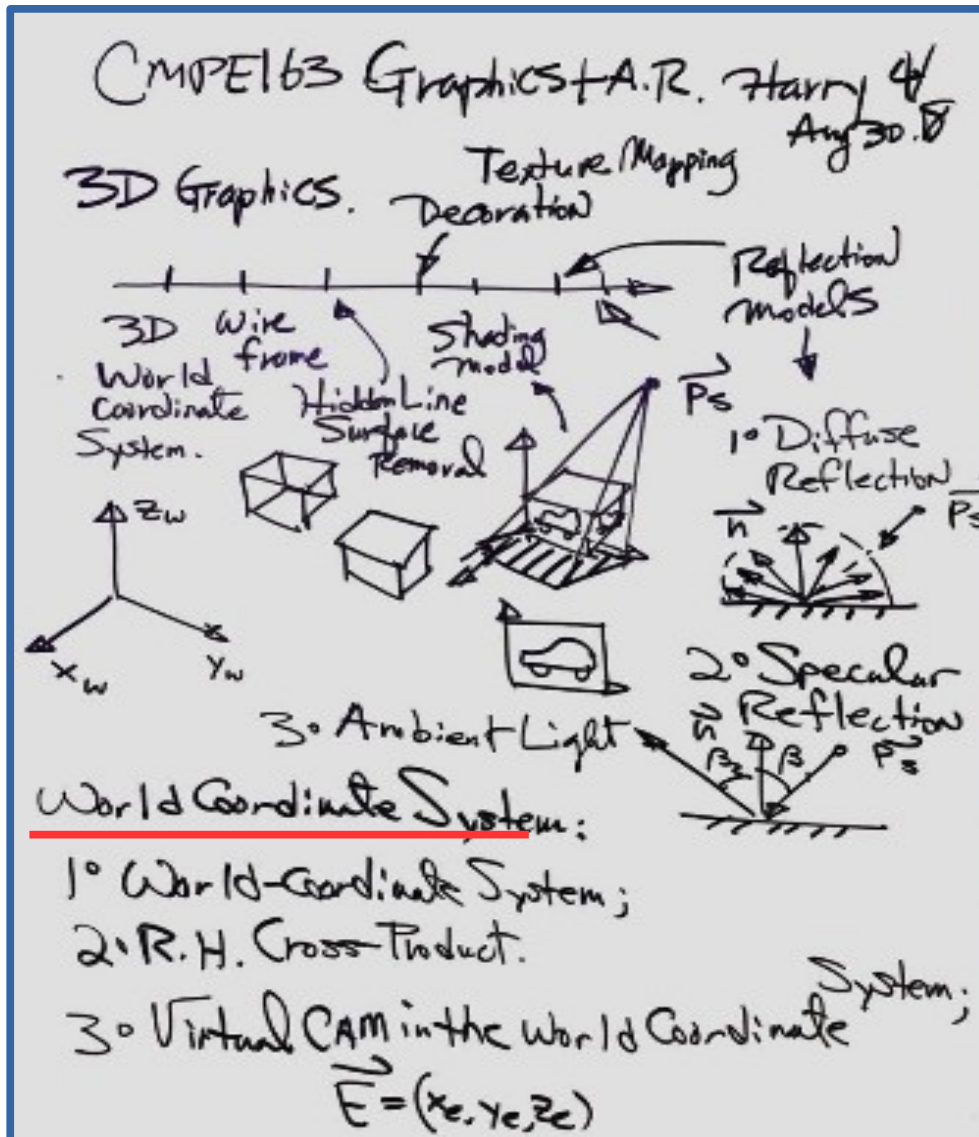 CMPE163 Graphics+A.R. Harry
Aug 30.
3D Graphics.
Texture Mapping
Decoration
Reflection
models
3D
World
Coordinate
System.
Wire
frame
Hidden Line
Surface
Removal
Shading
model
Ps
1° Diffuse
Reflection
n
Ps
Zw
Xw
Yw
2° Specular
Reflection
n
Ps
β
3° Ambient Light
World Coordinate System:
1° World-Coordinate System;
2° R.H. Cross-Product.
3° Virtual CAM in the World Coordinate System;
E=(xe, ye, ze)